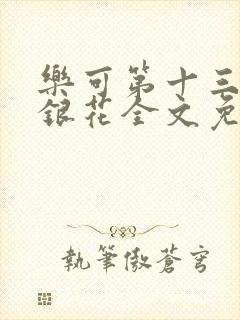 樂可第十三
銀花全文免
執筆傲蒼穹